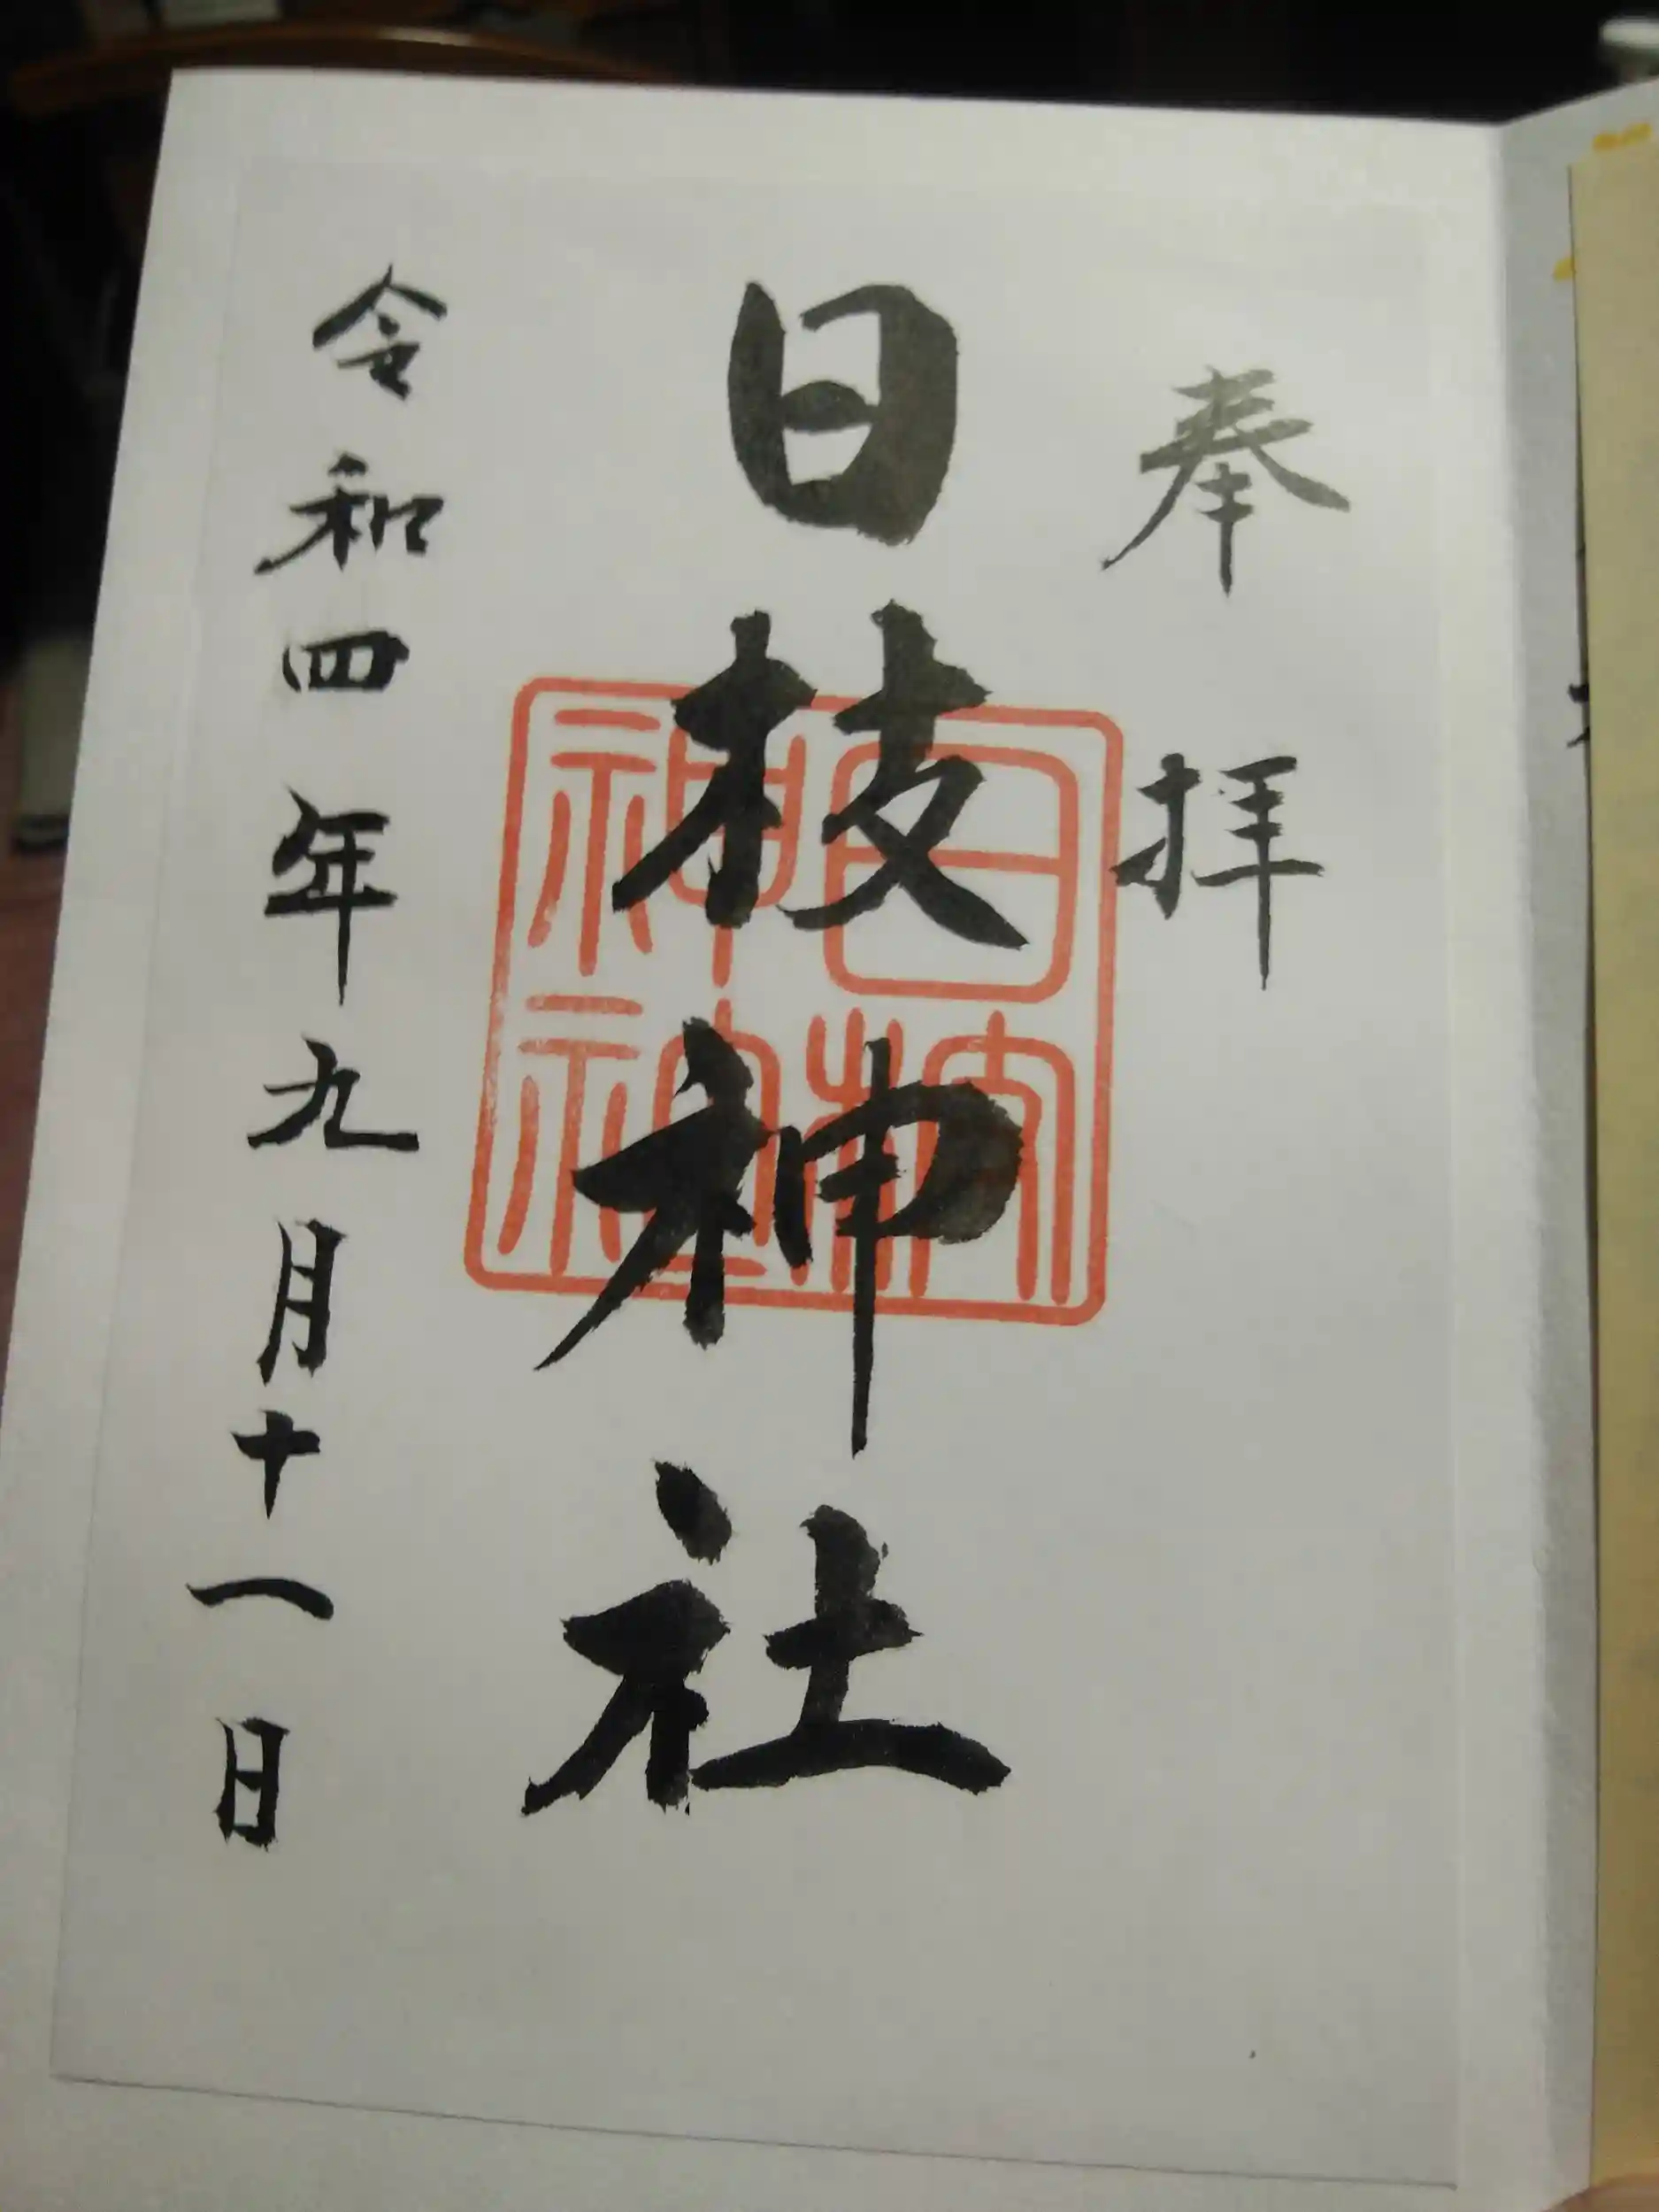 奉拝
日枝神社
日枝神社
令和四年九月十一日